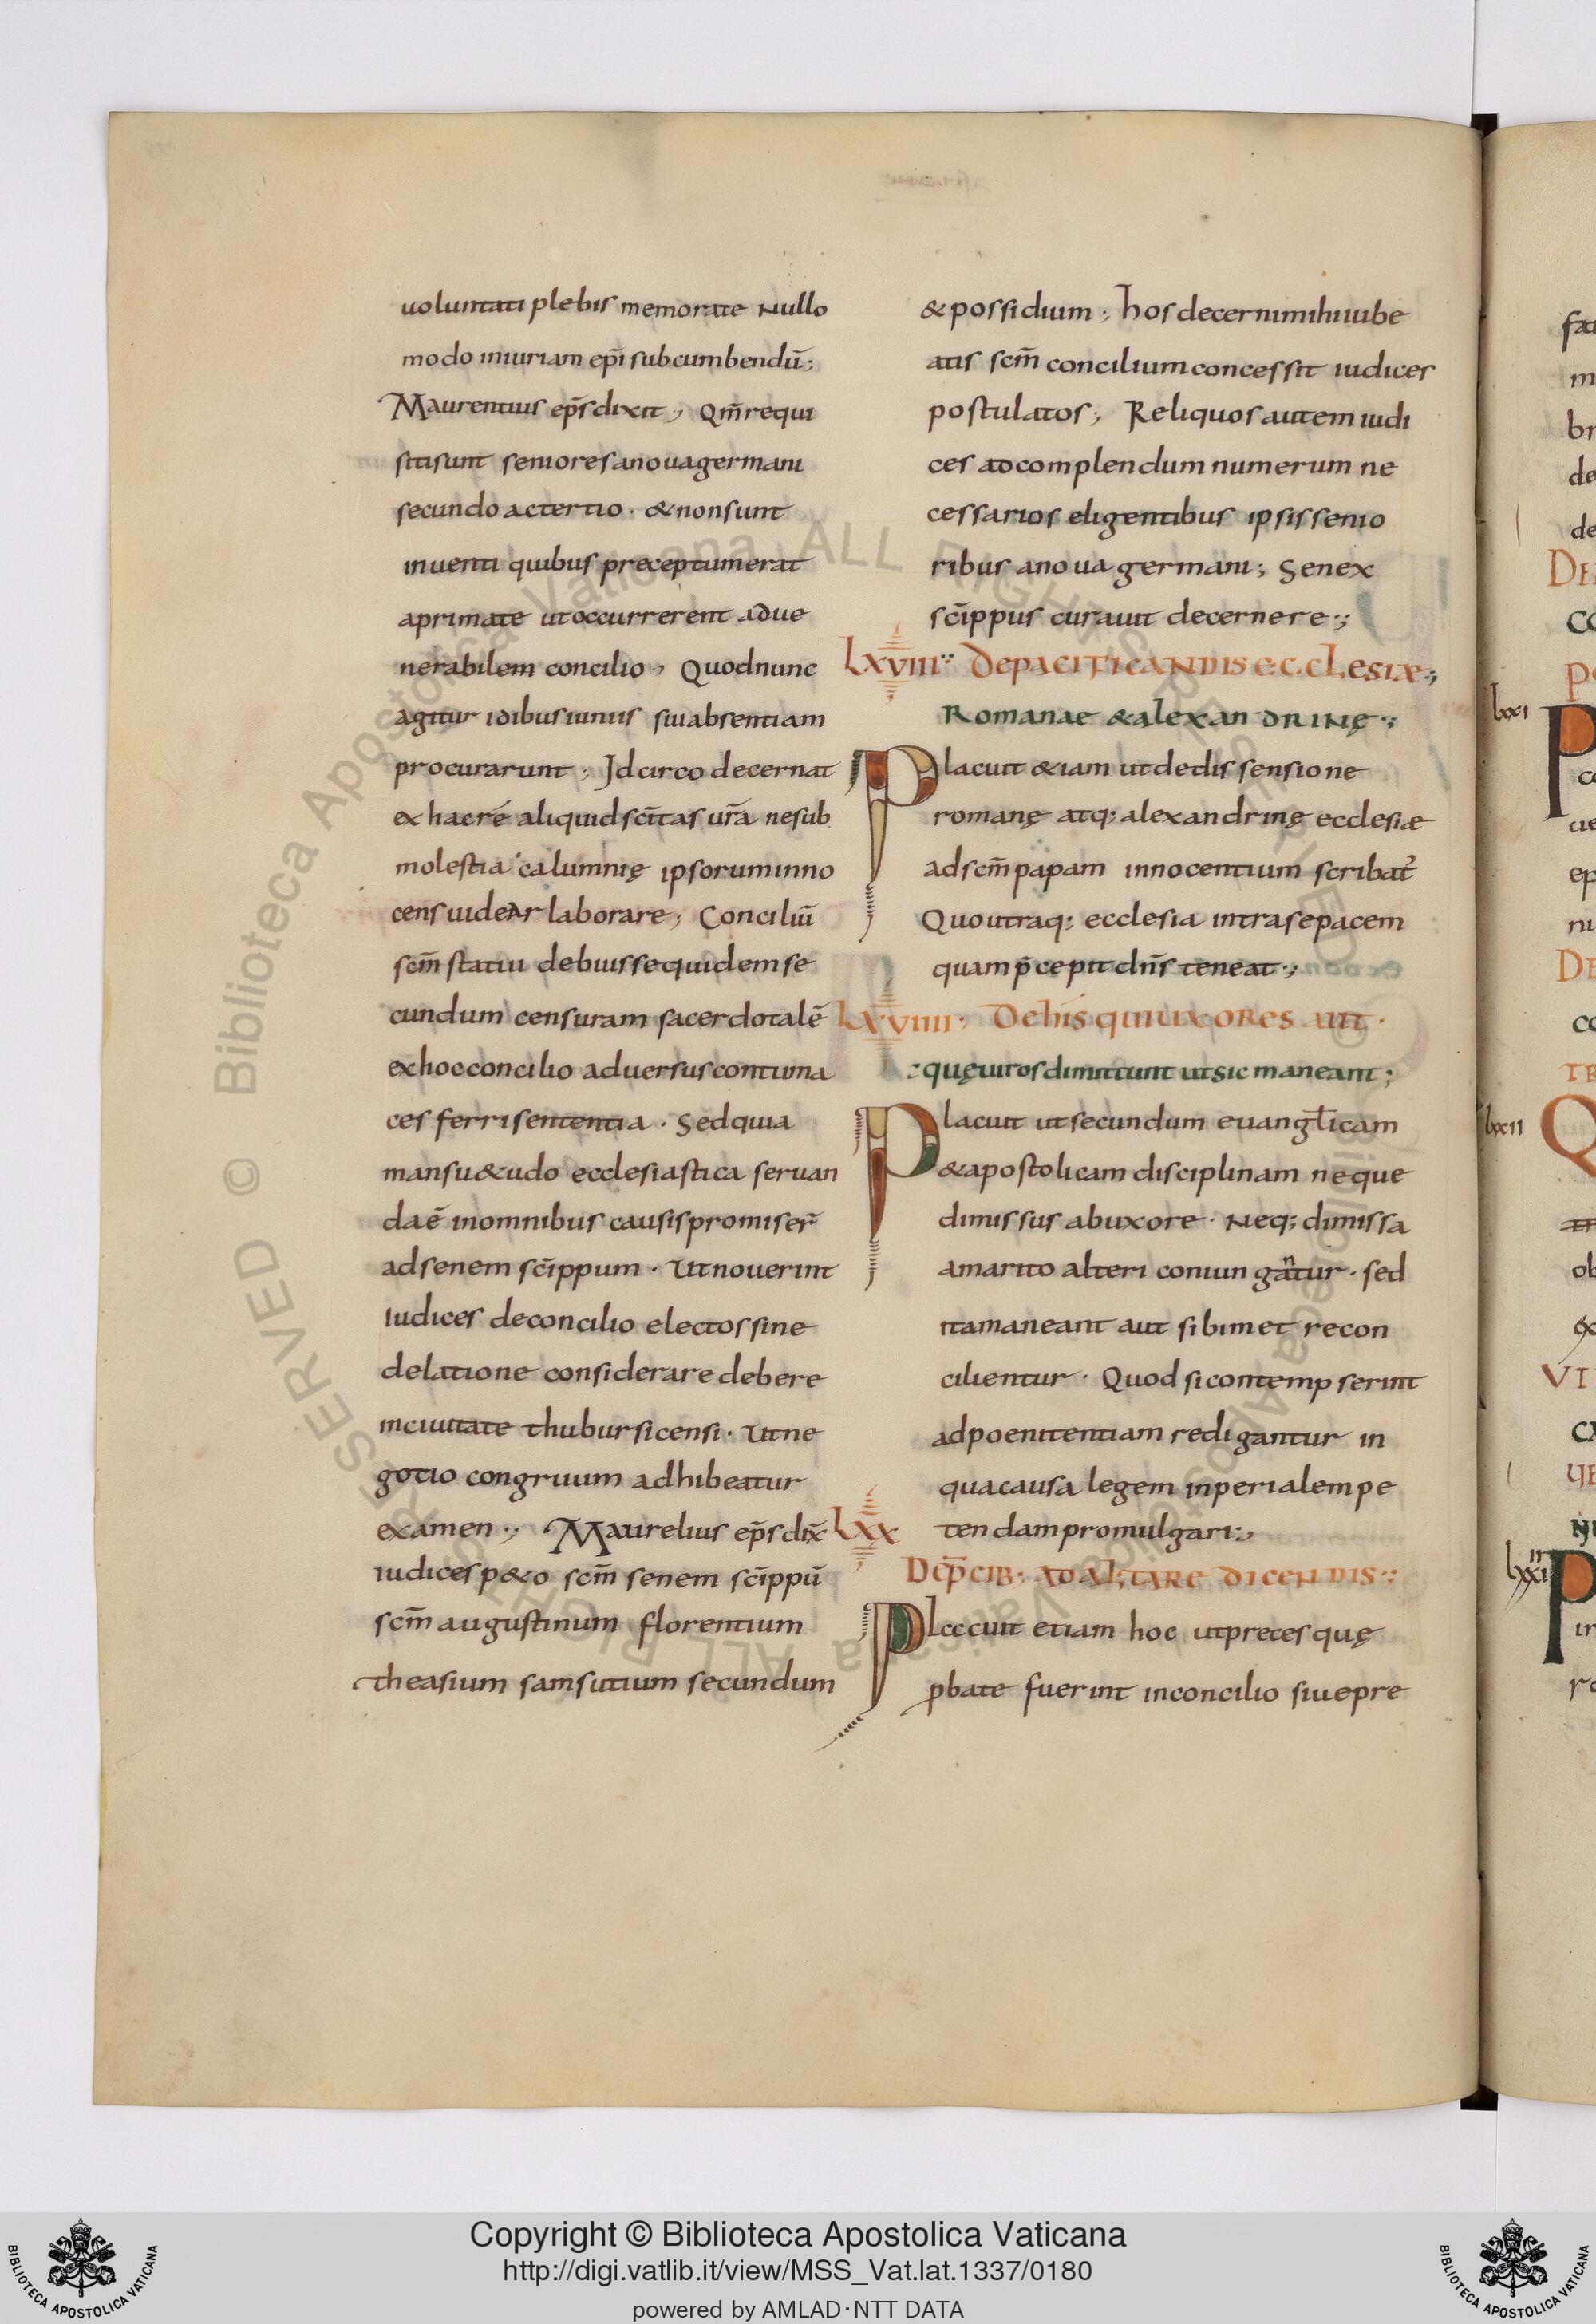 uoluntati plebis memorate nullo
modo iniuriam ep̄i subcumbendū;
Maurentius ep̄s dixit; Qm̄ requi
siti sunt seniores a noua germani
secundo ac tertio· & non sunt
inuenti quibus preceptum erat
a primate ut occurrerent ad ue
nerabilem concilio; Quod nunc
agitur idibus iuniis siui absentiam
procurarunt; Idcirco decernat
ex hac rē aliquid sc̄itas ur̄a ne sub
molestia calumnię ipsorum inno
cens uidear laborare; Conciliū
sc̄m statui debuisse quidem se
cundum censuram sacerdotalē
ex hoc concilio aduersus contuma
ces ferri sententia· Sed quia
mansu&udo ecclesiastica seruan
da ē in omnibus causis promiser̄
ad senem sc̄ippum· Ut nouerint
iudices de concilio electos sine
delatione considerare debere
in ciuitate thubursicensi· Ut ne
gotio congruum adhibeatur
examen; Maurelius ep̄s dix̄
iudices p&o sc̄m senem sc̄ippū
sc̄m augustinum florentium
theasium samsutium secundum
& possidium; hos decerni mihi iube
atis sc̄m concilium concessit iudices
postulatos; Reliquos autem iudi
ces ad complendum numerum ne
cessarios eligentibus ipsis senio
ribus a noua germani; Senex
sc̄ippus curauit decernere;
lxviii De pacificandis ecclesiæ;
Romanae & alexandrinę;
Placuit &iam ut de dissensione
romanę atq; alexandrinę ecclesiæ
ad sc̄m papam innocentium scribat̄
Quo utraq; ecclesia intra se pacem
quam p̄cepit dn̄s teneat;
lxviiii· De his qui uxores aut·
quę uiros dimittunt ut sic maneant;
Placuit ut secundum euangl̄icam
& apostolicam disciplinam neque
dimissus ab uxore· Neq; dimissa
a marito alteri coniungantur· sed
ita maneant aut sibimet recon
cilientur· Quod si contempserint
ad poenitentiam redigantur in
qua causa legem inperialem pe
tendam promulgari;
lxx
De p̄cib; ad altare dicendis;
Placcuit etiam hoc ut preces quę
pbate fuerint in concilio siue pre
lxxi
lxxii
Copyright © Biblioteca Apostolica Vaticana
http://digi.vatlib.it/view/MSS_Vat.lat.1337/0180
powered by AMLAD·NTT DATA